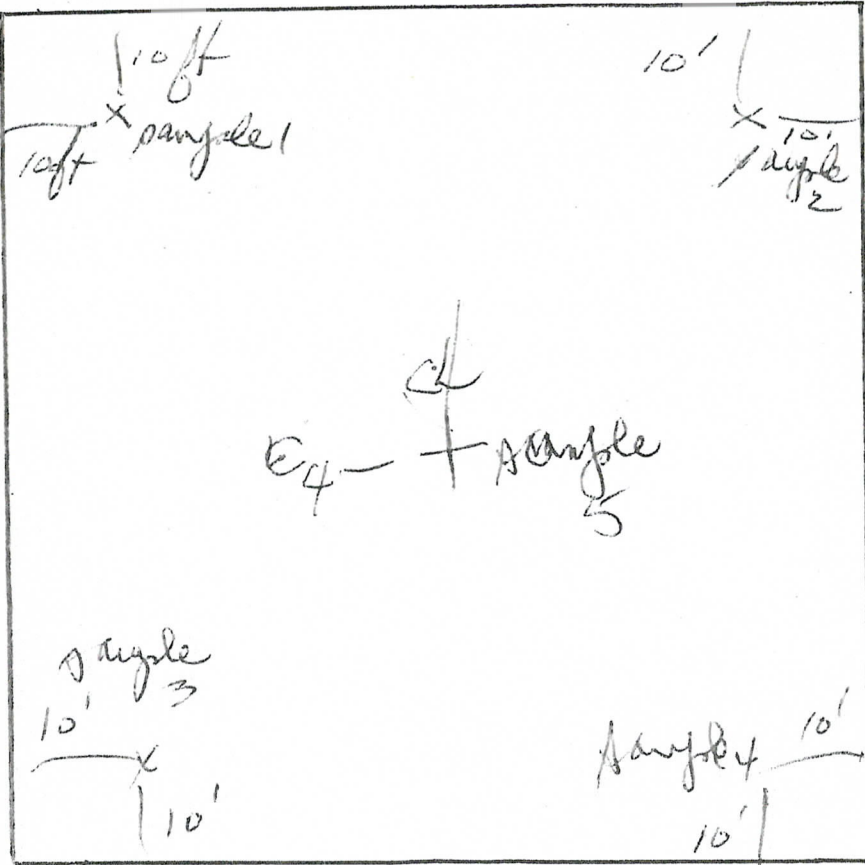 10 ft
10ft
sample 1
10'
10'
sample
2
CL
sample
5
sample
3
10'
10'
sample 4
10'
10'